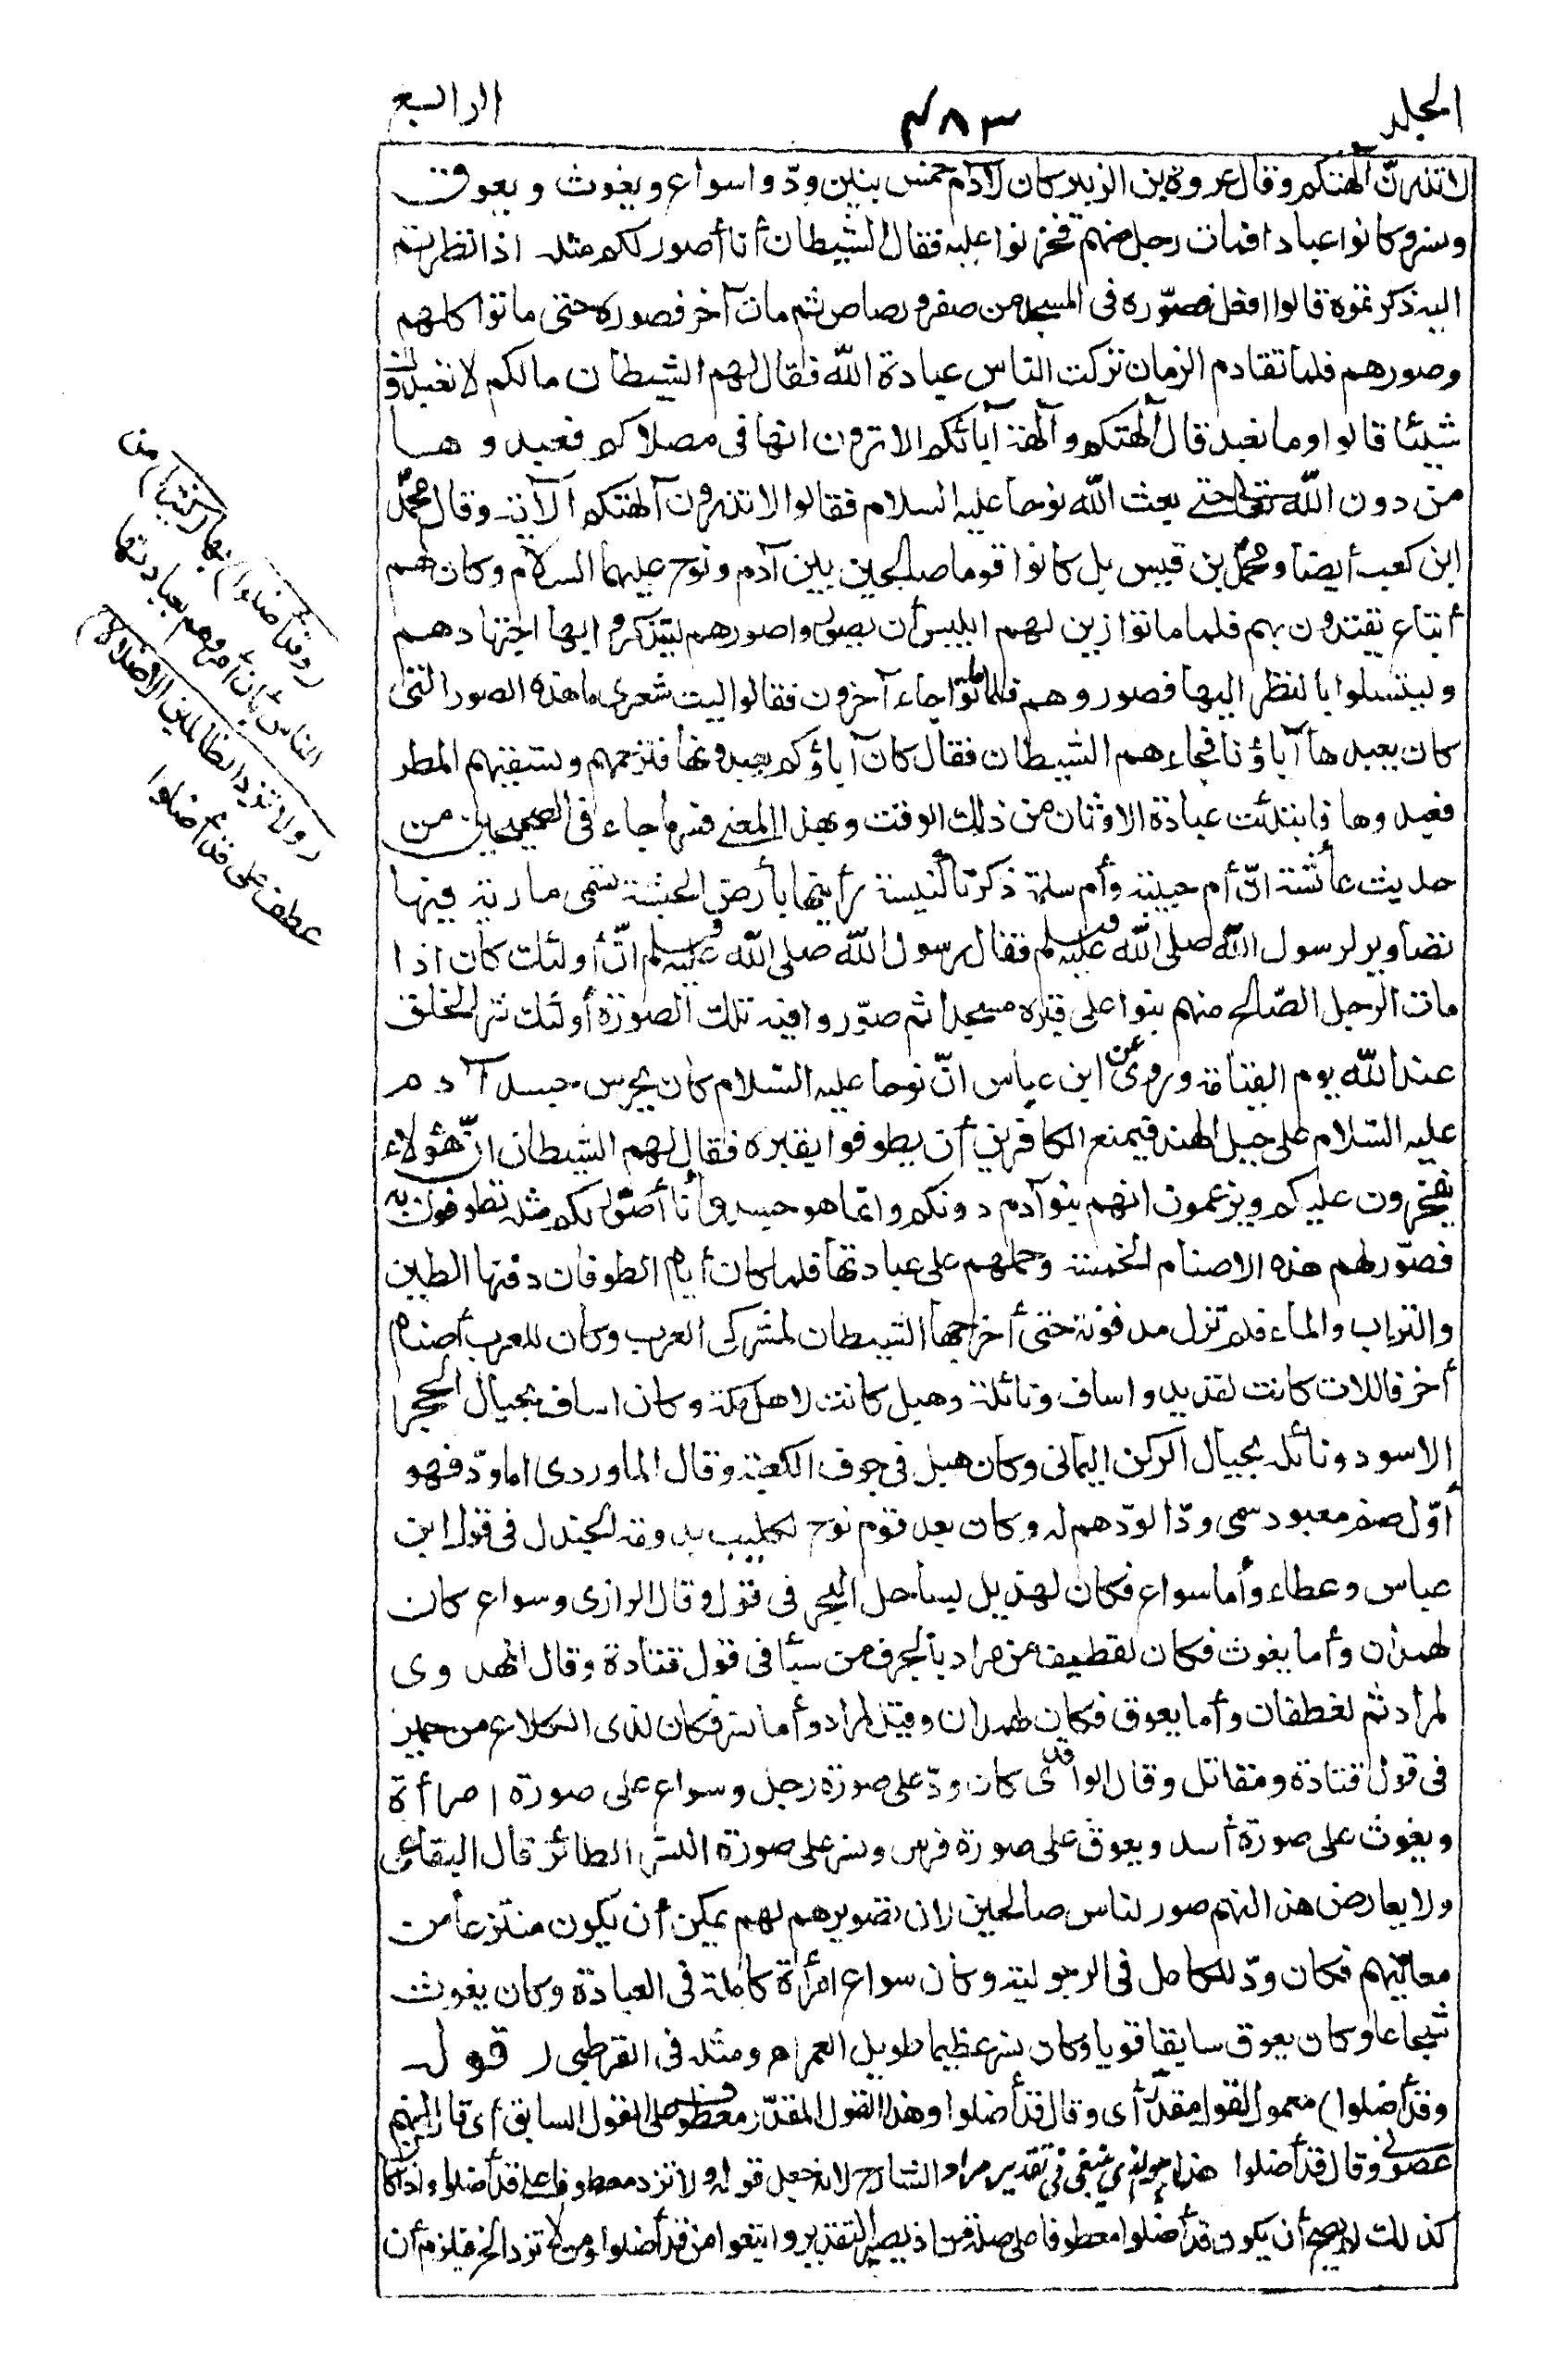 الجلد
٤٨٣
الرابع
لا تذرنّ آلهتكم وقال عروة بن الزبير كان لآدم خمس بنين ودّ واسواع ويغوث ويعوق
ونسر وكانوا عبادا فمات رجل منهم فحزنوا عليه فقال الشيطان أنا أصور لكم مثله اذا نظرتم
اليه ذكرتموه قالوا افعل فصوّره فى المسجد من صفر ورصاص ثم مات آخر فصوره حتى ماتوا كلهم
وصورهم فلما تقادم الزمان تركت الناس عبادة الله فقال لهم الشيطان مالكم لا تعبدون
شيئا قالوا وما نعبد قال آلهتكم وآلهة آبائكم الا ترون انها فى مصلاكم فعبدوها
من دون الله تعالى حتى بعث الله نوحا عليه السلام فقالوا لا تذرون آلهتكم الآية وقال محمد
ابن كعب أيضا ومحمد بن قيس بل كانوا قوما صالحين بين آدم ونوح عليهما السلام وكان لهم
أتباع يقتدون بهم فلما ماتوا زين لهم ابليس أن يصوروا صورهم ليتذكروا بها اجتهادهم
وليتسلوا بالنظر اليها فصوروهم فلما ماتوا جاء آخرون فقالوا ليت شعرى ما هذه الصور التى
كان يعبدها آباؤنا فجاءهم الشيطان فقال كان آباؤكم يعبدونها فترحمهم وتسقيهم المطر
فعبدوها فابتدئت عبادة الاوثان من ذلك الوقت وبهذا المعنى فسر ما جاء فى الصحيحين من
حديث عائشة انّ أم حبيبة وأم سلمة ذكرتا كنيسة رأينها بأرض الحبشة تسمى مارية فيها
تصاوير لرسول الله صلى الله عليه وسلم فقال رسول الله صلى الله عليه وسلم انّ أولئك كان اذا
مات الرجل الصّالح منهم بنوا على قبره مسجدا ثم صوّروا فيه تلك الصورة أولئك شر الخلق
عند الله يوم القيامة وروى عن ابن عباس انّ نوحا عليه السّلام كان يحرس جسد آدم
عليه السّلام على جبل الهند فيمنع الكافرين أن يطوفوا بقبره فقال لهم الشيطان انّ هؤلاء
يفخرون عليكم ويزعمون انهم بنو آدم دونكم وانما هو جسد وأنا أصوّر لكم مثله تطوفون به
فصوّر لهم هذه الاصنام الخمسة وحملهم على عبادتها فلما كان أيام الطوفان دفنها الطين
والتراب والماء فلم تزل مدفونة حتى أخرجها الشيطان لمشركى العرب وكان للعرب أصنام
أخر فاللات كانت لقديد واساف ونائلة وهبل كانت لاهل مكة وكان اساف بحيال الحجر
الاسود ونائلة بحيال الركن اليمانى وكان هبل فى جوف الكعبة وقال الماوردى اما ودّ فهو
أوّل صنم معبود سمى ودّا لودّهم له وكان بعد قوم نوح لكليب بدومة الجندل فى قول ابن
عباس وعطاء وأما سواع فكان لهذيل بساحل البحر فى قول وقال الرازى وسواع كان
لهمدان وأما يغوث فكان لقطيف من مراد بالجرف من سبأ فى قول قتادة وقال المهدوى
لمراد ثم لغطفان وأما يعوق فكان لهمدان وقيل لمراد وأما نسر فكان لذى الكلاع من حمير
فى قول قتادة ومقاتل وقال الواقدى كان ودّ على صورة رجل وسواع على صورة امرأة
ويغوث على صورة أسد ويعوق على صورة فرس ونسر على صورة النسر الطائر قال البقاعى
ولا يعارض هذا انهم صور لناس صالحين لان تصويرهم لهم يمكن أن يكون منتزعا من
معانيهم فكان ودّ للكامل فى الرجولية وكان سواع امرأة كاملة فى العبادة وكان يغوث
شجاعا وكان يعوق سابقا قويا وكان نسر عظيما طويل العمر اه ومثله فى القرطبى (قوله
وقد أضلوا) معمول لقول مقدّر أى وقال قد أضلوا وهذا القول المقدّر معطوف على القول السابق أى قال انهم
عصونى وقال قد أضلوا هذا هو الذى ينبغى فى تقدير مراد الشارح لانه جعل قوله ولا تزد معطوفا على قد أضلوا واذا كان
كذلك لا يصح أن يكون قد أضلوا معطوفا على صلة من اذ يصير التقدير واتبعوا من قد أضلوا ومن لا تزد الخ فلزم أن
(وقد أضلوا) بها (كثيرا) من
الناس بأن أمروهم بعبادتها
(ولا تزد الظالمين الا ضلالا)
عطف على قد أضلوا